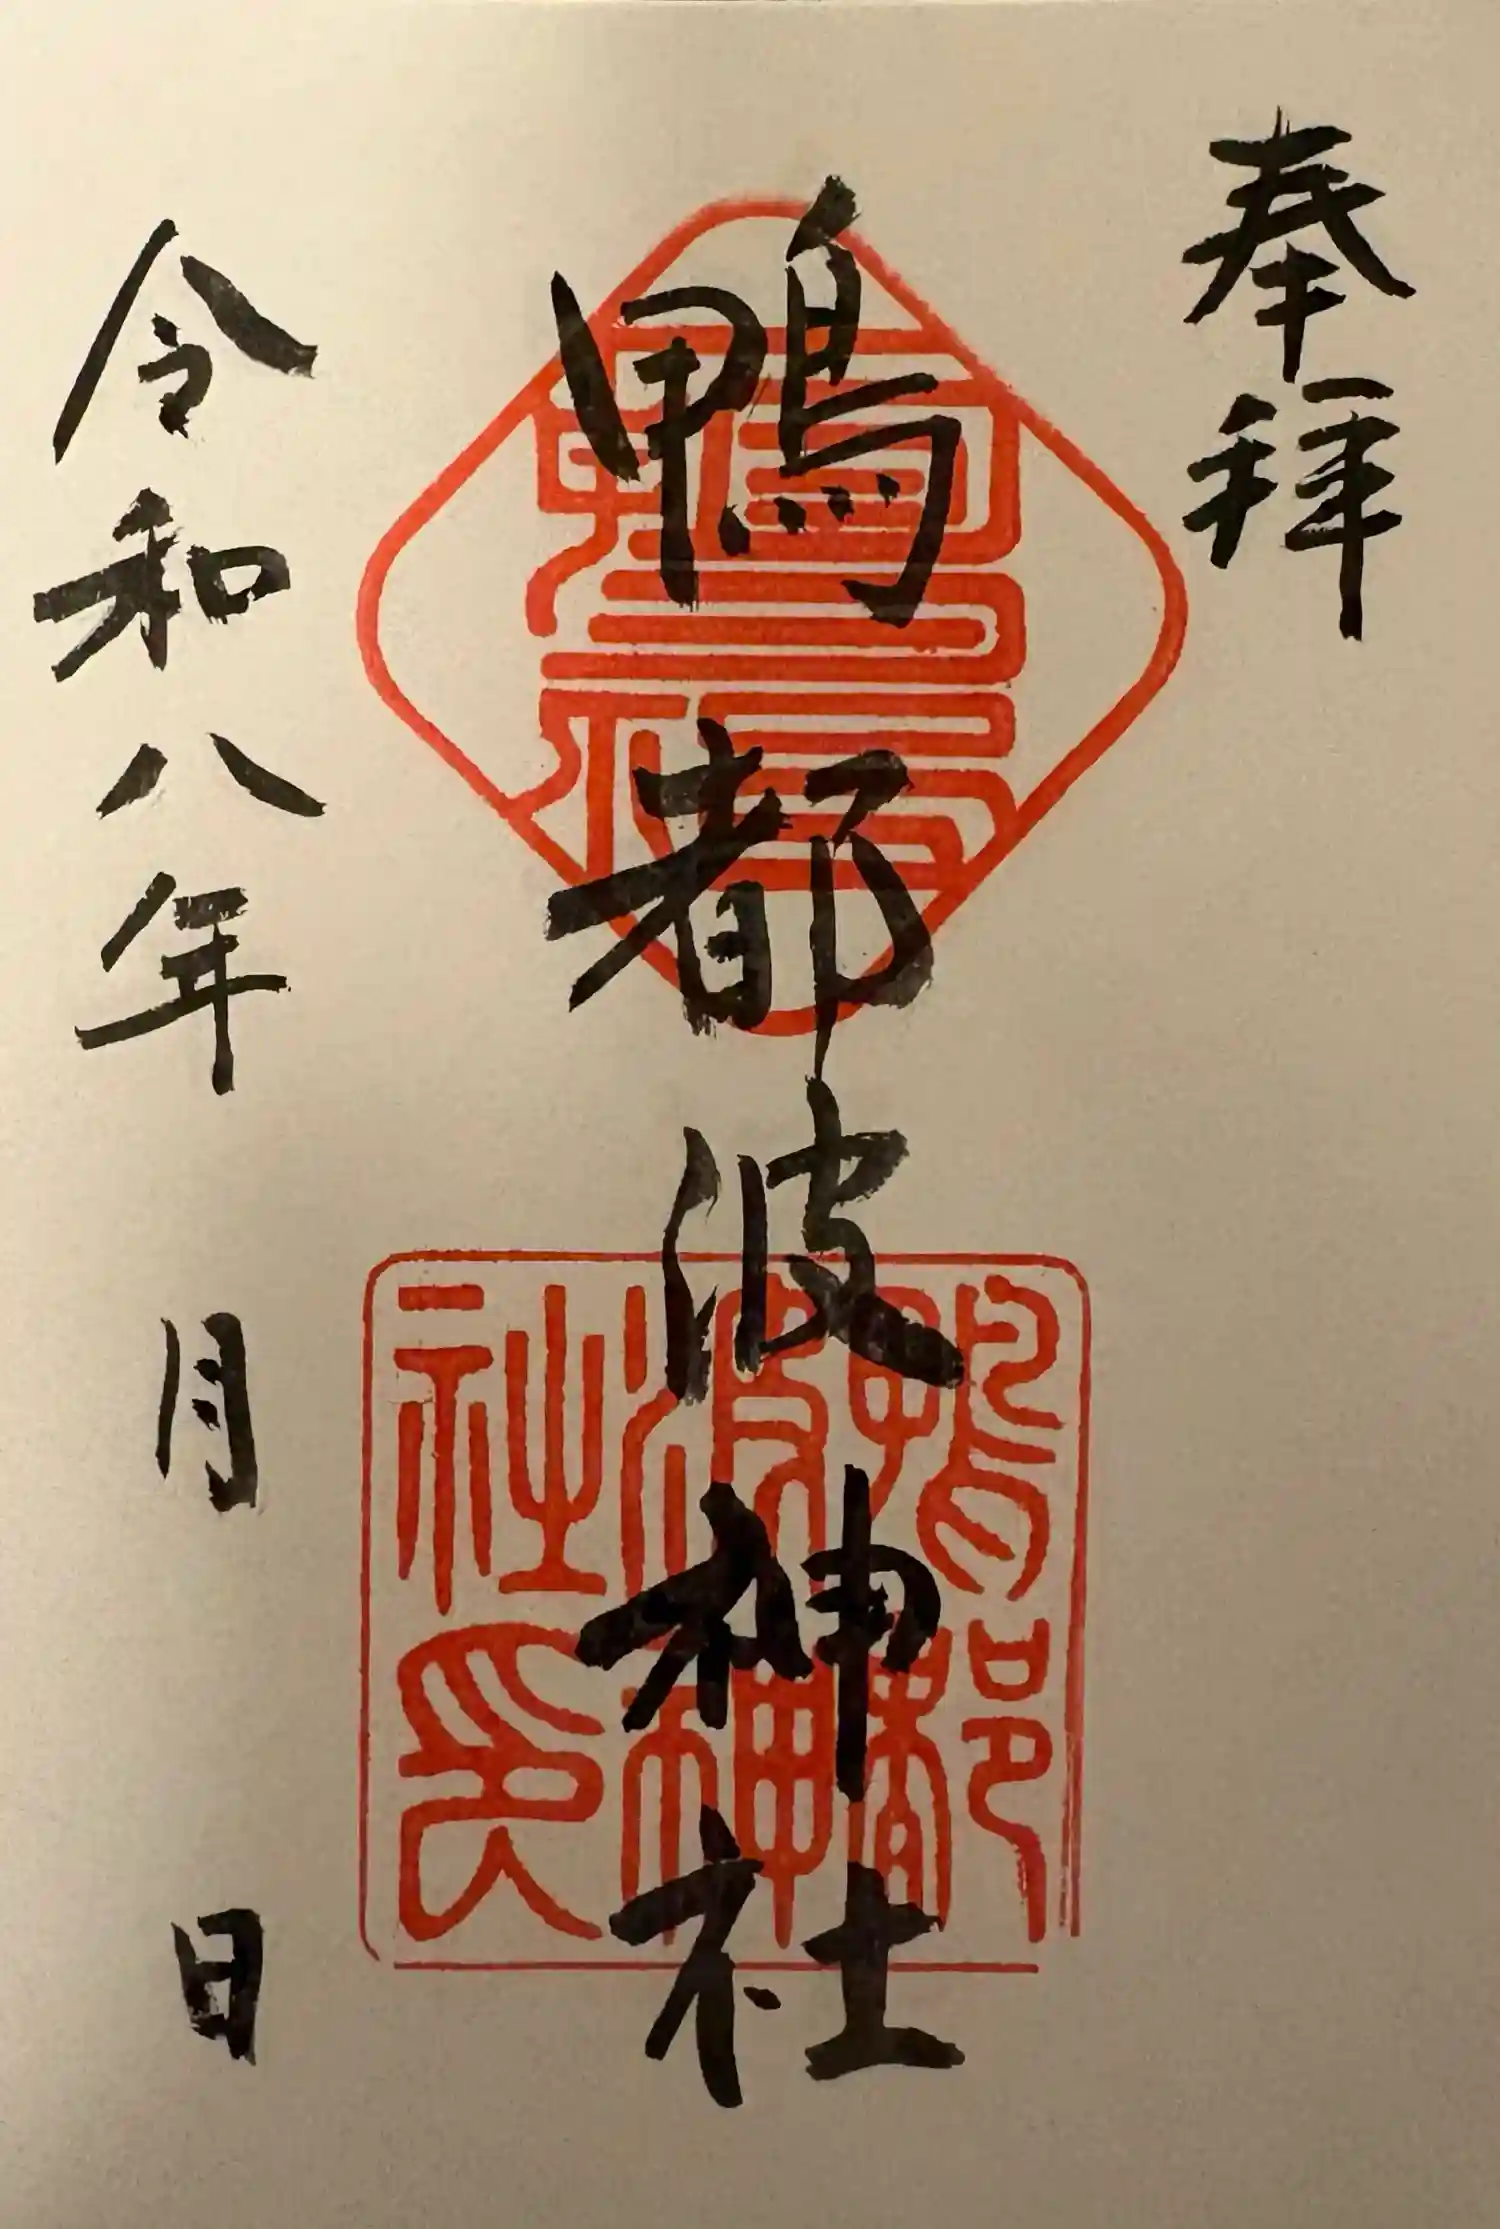 奉拝
鴨都波神社
令和八年 月 日
鴨都
波神
社印